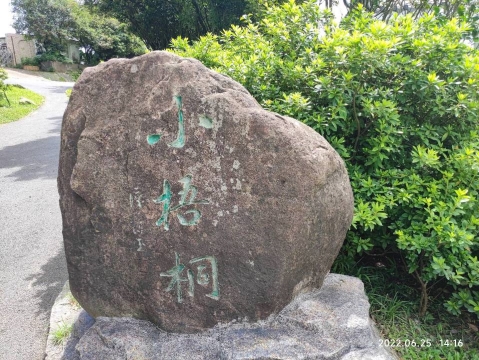 小梧桐
2022.06.25 14:16